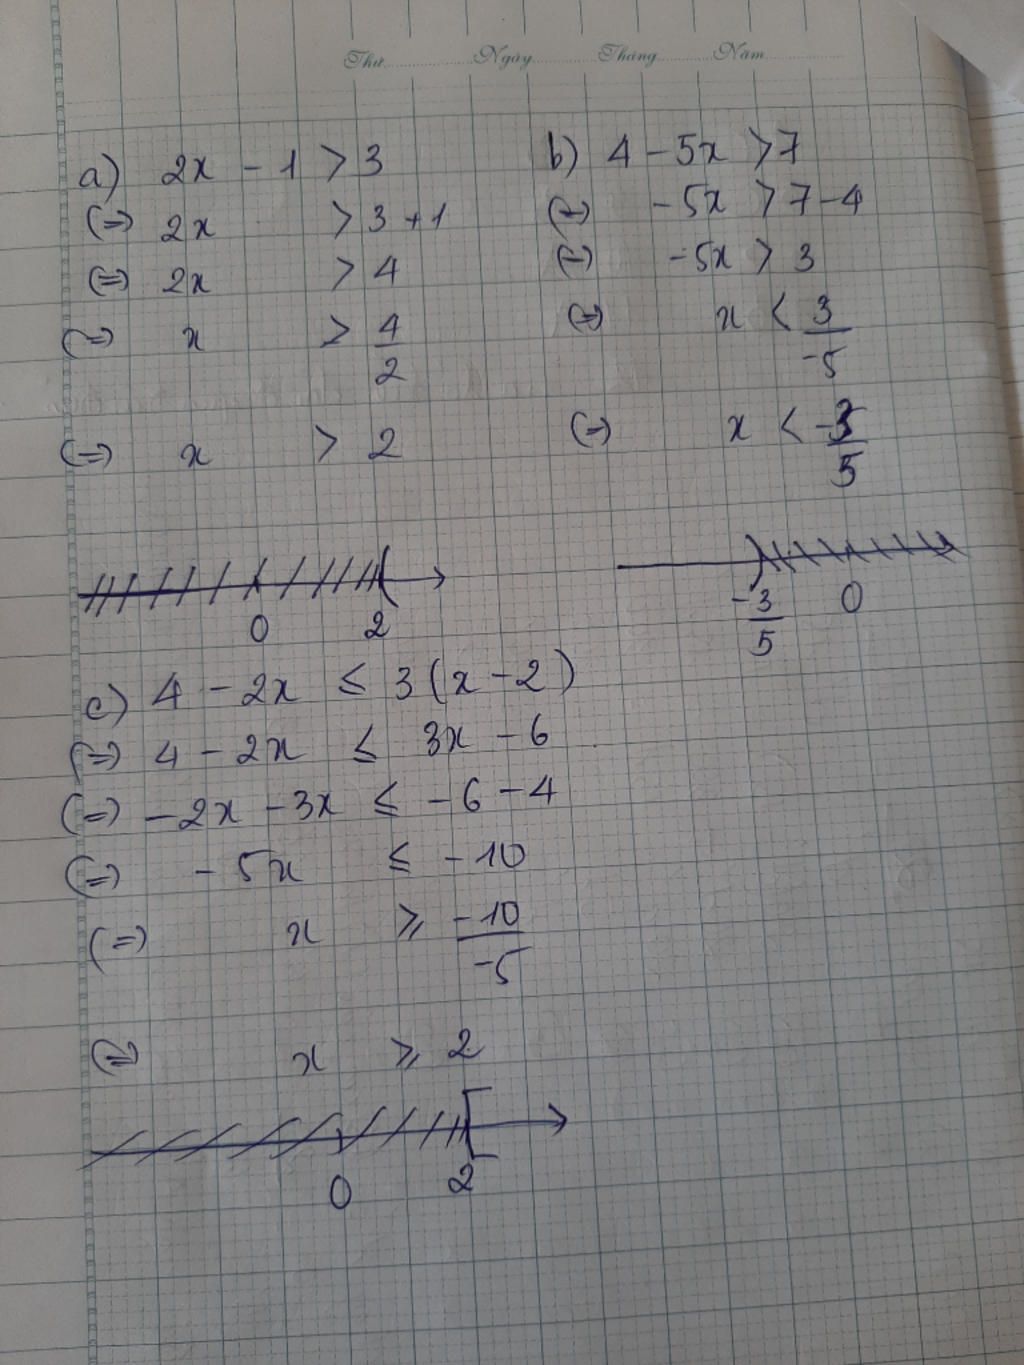 Thứ Ngày Tháng Năm
a) 2x - 1 > 3
(=) 2x > 3 + 1
(=) 2x > 4
(=) x > 4/2
(=) x > 2
0 2
b) 4 - 5x > 7
(=) -5x > 7 - 4
(=) -5x > 3
(=) x < 3/-5
(=) x < -3/5
-3/5 0
c) 4 - 2x ≤ 3(x - 2)
(=) 4 - 2x ≤ 3x - 6
(=) -2x - 3x ≤ -6 - 4
(=) -5x ≤ -10
(=) x ≥ -10/-5
(=) x ≥ 2
0 2